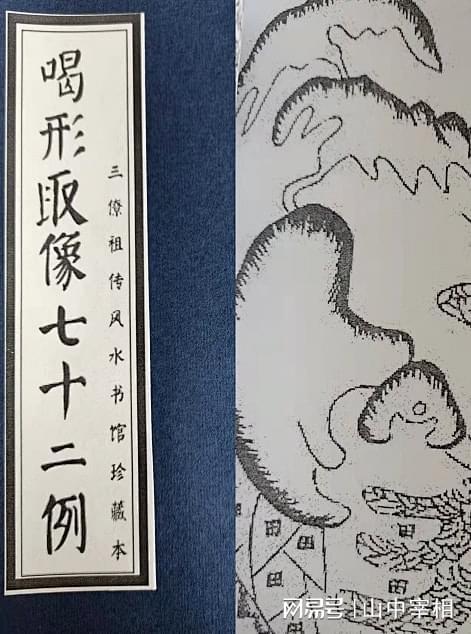 喝形取像七十二例
三僚祖传风水书馆珍藏本
网易号 | 山中宰相